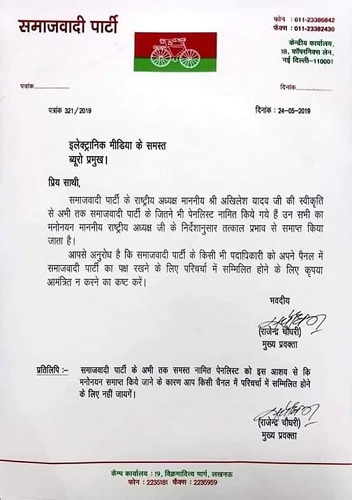 समाजवादी पार्टी
फोन : 011-23386842
फैक्स : 011-23382430
केन्द्रीय कार्यालय,
18, कॉपरनिकस लेन,
नई दिल्ली-110001
पत्रांक
दिनांक
पत्रांक 321/2019
दिनांक : 24-05-2019
इलेक्ट्रानिक मीडिया के समस्त
ब्यूरो प्रमुख।
प्रिय साथी,
समाजवादी पार्टी के राष्ट्रीय अध्यक्ष माननीय श्री अखिलेश यादव जी की स्वीकृति
से अभी तक समाजवादी पार्टी के जितने भी पेनलिस्ट नामित किये गये हैं उन सभी का
मनोनयन माननीय राष्ट्रीय अध्यक्ष जी के निर्देशानुसार तत्काल प्रभाव से समाप्त किया
जाता है।
आपसे अनुरोध है कि समाजवादी पार्टी के किसी भी पदाधिकारी को अपने पैनल में
समाजवादी पार्टी का पक्ष रखने के लिए परिचर्चा में सम्मिलित होने के लिए कृपया
आमंत्रित न करने का कष्ट करें।
भवदीय
(राजेन्द्र चौधरी)
मुख्य प्रवक्ता
प्रतिलिपि :- समाजवादी पार्टी के अभी तक समस्त नामित पेनलिस्ट को इस आशय से कि
मनोनयन समाप्त किये जाने के कारण आप किसी चैनल में परिचर्चा में सम्मिलित होने
के लिए नहीं जायगें।
(राजेन्द्र चौधरी)
मुख्य प्रवक्ता
कैम्प कार्यालय : 19, विक्रमादित्य मार्ग, लखनऊ
फोन : 2235181 फैक्स : 2235959